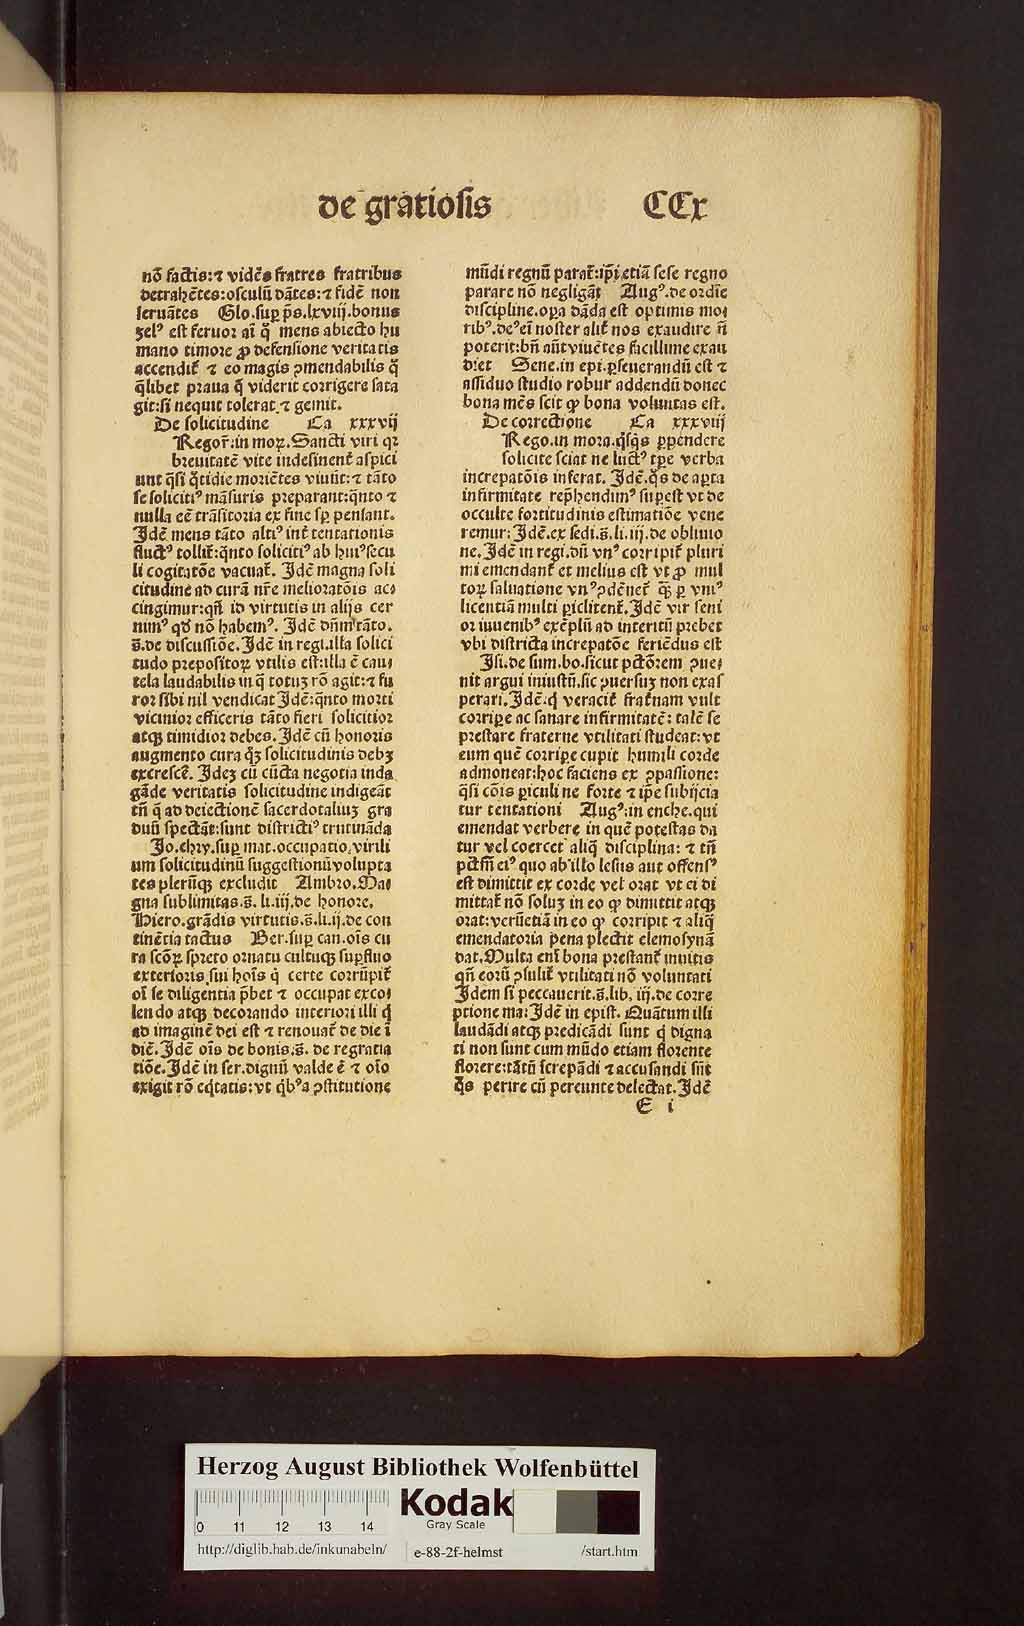 de gratiosis CCx
nō factis:⁊ vidēs fratres fratribus
detrahētes:osculū dātes:⁊ fidē non
seruātes Glo.sup ps.lxviij.bonus
zelꝰ est feruor aī q̄ mens abiecto hu
mano timore ꝓ defensione veritatis
accendit̄ ⁊ eo magis ꝯmendabilis q̄
q̄libet praua q̄ viderit corrigere sata
git:si nequit tolerat ⁊ gemit.
De solicitudine Ca xxxvij
Regor̄:in moꝝ.Sancti viri qꝛ
breuitatē vite indesinent̄ aspici
unt q̄si q̄tidie moriētes viuūt:⁊ tāto
se solicitiꝰ māsuris preparant:q̄nto ⁊
nulla eē trāsitoria ex fine sp pensant.
Idē mens tāto altiꝰ int̄ tentationis
fluctꝰ tollit̄:q̄nto solicitiꝰ ab huiꝰ secu
li cogitatōe vacuat̄. Idē magna soli
citudine ad curā nr̄e melioratōis ac⸗
cingimur:qn̄ id virtutis in alijs cer
nimꝰ qd nō habemꝰ. Idē dn̄m tāto.
s̄.de discussiōe. Idē in regi.illa solici
tudo prepositoꝝ vtilis est:illa ē cau⸗
tela laudabilis in q̄ totuz rō agit:⁊ fu
ror sibi nil vendicat Idē:q̄nto morti
vicinior efficeris tāto fieri solicitior
atqꝫ timidior debes. Idē cū honoris
augmento cura qꝫ solicitudinis debꝫ
excrescē. Idez cū cūcta negotia inda
gāde veritatis solicitudine indigeāt
tn̄ q̄ ad deiectionē sacerdotaliuz gra
duū spectāt:sunt districtiꝰ trutināda
Jo.chry.sup mat.occupatio virili
um solicitudinū suggestionū volupta
tes plerūqꝫ excludit Ambro.Ma⸗
gna sublimitas.s̄. li.iij.de honore.
Hiero.grādis virtutis.s̄.li.ij.de con
tinētia tactus Ber.sup can.oīs cu
ra scōꝝ spreto ornatu cultuqꝫ supfluo
exterioris sui hoīs q̄ certe corrūpit̄
oī se diligentia p̄bet ⁊ occupat exco⸗
lendo atqꝫ decorando interiori illi q̄
ad imaginē dei est ⁊ renouat̄ de die ī
diē. Idē oīs de bonis.s̄. de regratia
tiōe.Idē in ser.dignū valde ē ⁊ oīo
exigit rō eq̄tatis:vt q̄bꝰ a ꝯstitutione
mūdi regnū parat̄:ip̄i etiā sese regno
parare nō negligāt Augꝰ.de ordīe
discipline.opa dāda est optimis mo⸗
ribꝰ.deꝰ eī noster alit̄ nos exaudire n̄
poterit:bn̄ aūt viuētes facillime exau
diet Sene.in epi.pseuerandū est ⁊
assiduo studio robur addendū donec
bona mēs scit qꝫ bona voluntas est.
De correctione Ca xxxviij
Rego.in mora.q̄sqs ppendere
solicite sciat ne luctꝰ tpe verba
increpatōis inferat. Idē.q̄s de apta
infirmitate rep̄hendimꝰ supest vt de
occulte fortitudinis estimatiōe vene
remur: Idē.ex sedi.s̄.li.iij.de obliuio
ne. Idē in regi.dū vnꝰ corripit̄ pluri
mi emendant̄ et melius est vt ꝓ mul
toꝝ saluatione vnꝰ ꝯdēnet̄ qꝫ p vniꝰ
licentiā multi piclitent̄. Idē vir seni
or iuuenibꝰ exēplū ad interitū prebet
vbi districta increpatōe feriēdus est
Jsi.de sum.bo.sicut pctōrem ꝯue⸗
nit argui iniustū.sic ꝯuersuz non exas
perari. Idē.q̄ veracit̄ frat̄nam vult
corripe ac sanare infirmitatē: talē se
prestare fraterne vtilitati studeat: vt
eum quē corripe cupit humili corde
admoneat:hoc faciens ex ꝯpassione:
q̄si cōis piculi ne forte ⁊ ip̄e subijcia
tur tentationi Augꝰ:in enche.qui
emendat verbere in quē potestas da
tur vel coercet aliq̄ disciplina: ⁊ tn̄
pctm̄ eiꝰ quo ab illo lesus aut offensꝰ
est dimittit ex corde vel orat vt ei di
mittat̄ nō soluz in eo qꝫ dimittit atqꝫ
orat:verūetiā in eo qꝫ corripit ⁊ aliq̄
emendatoria pena plectit elemosynā
dat.Multa eni bona prestant̄ inuitis
qn̄ eorū ꝯsulit̄ vtilitati nō voluntati
Idem si peccauerit.s̄.lib. iij.de corre
ptione ma: Idē in epist. Quātum illi
laudādi atqꝫ predicādi sunt q̄ digna
ti non sunt cum mūdo etiam florente
florere:tātū īcrepādi ⁊ accusandi sūt
q̄s perire cū pereunte delectat. Idē
E i
Herzog August Bibliothek Wolfenbüttel
0 11 12 13 14
Kodak
Gray Scale
http://diglib.hab.de/inkunabeln/ e-88-2f-helmst /start.htm